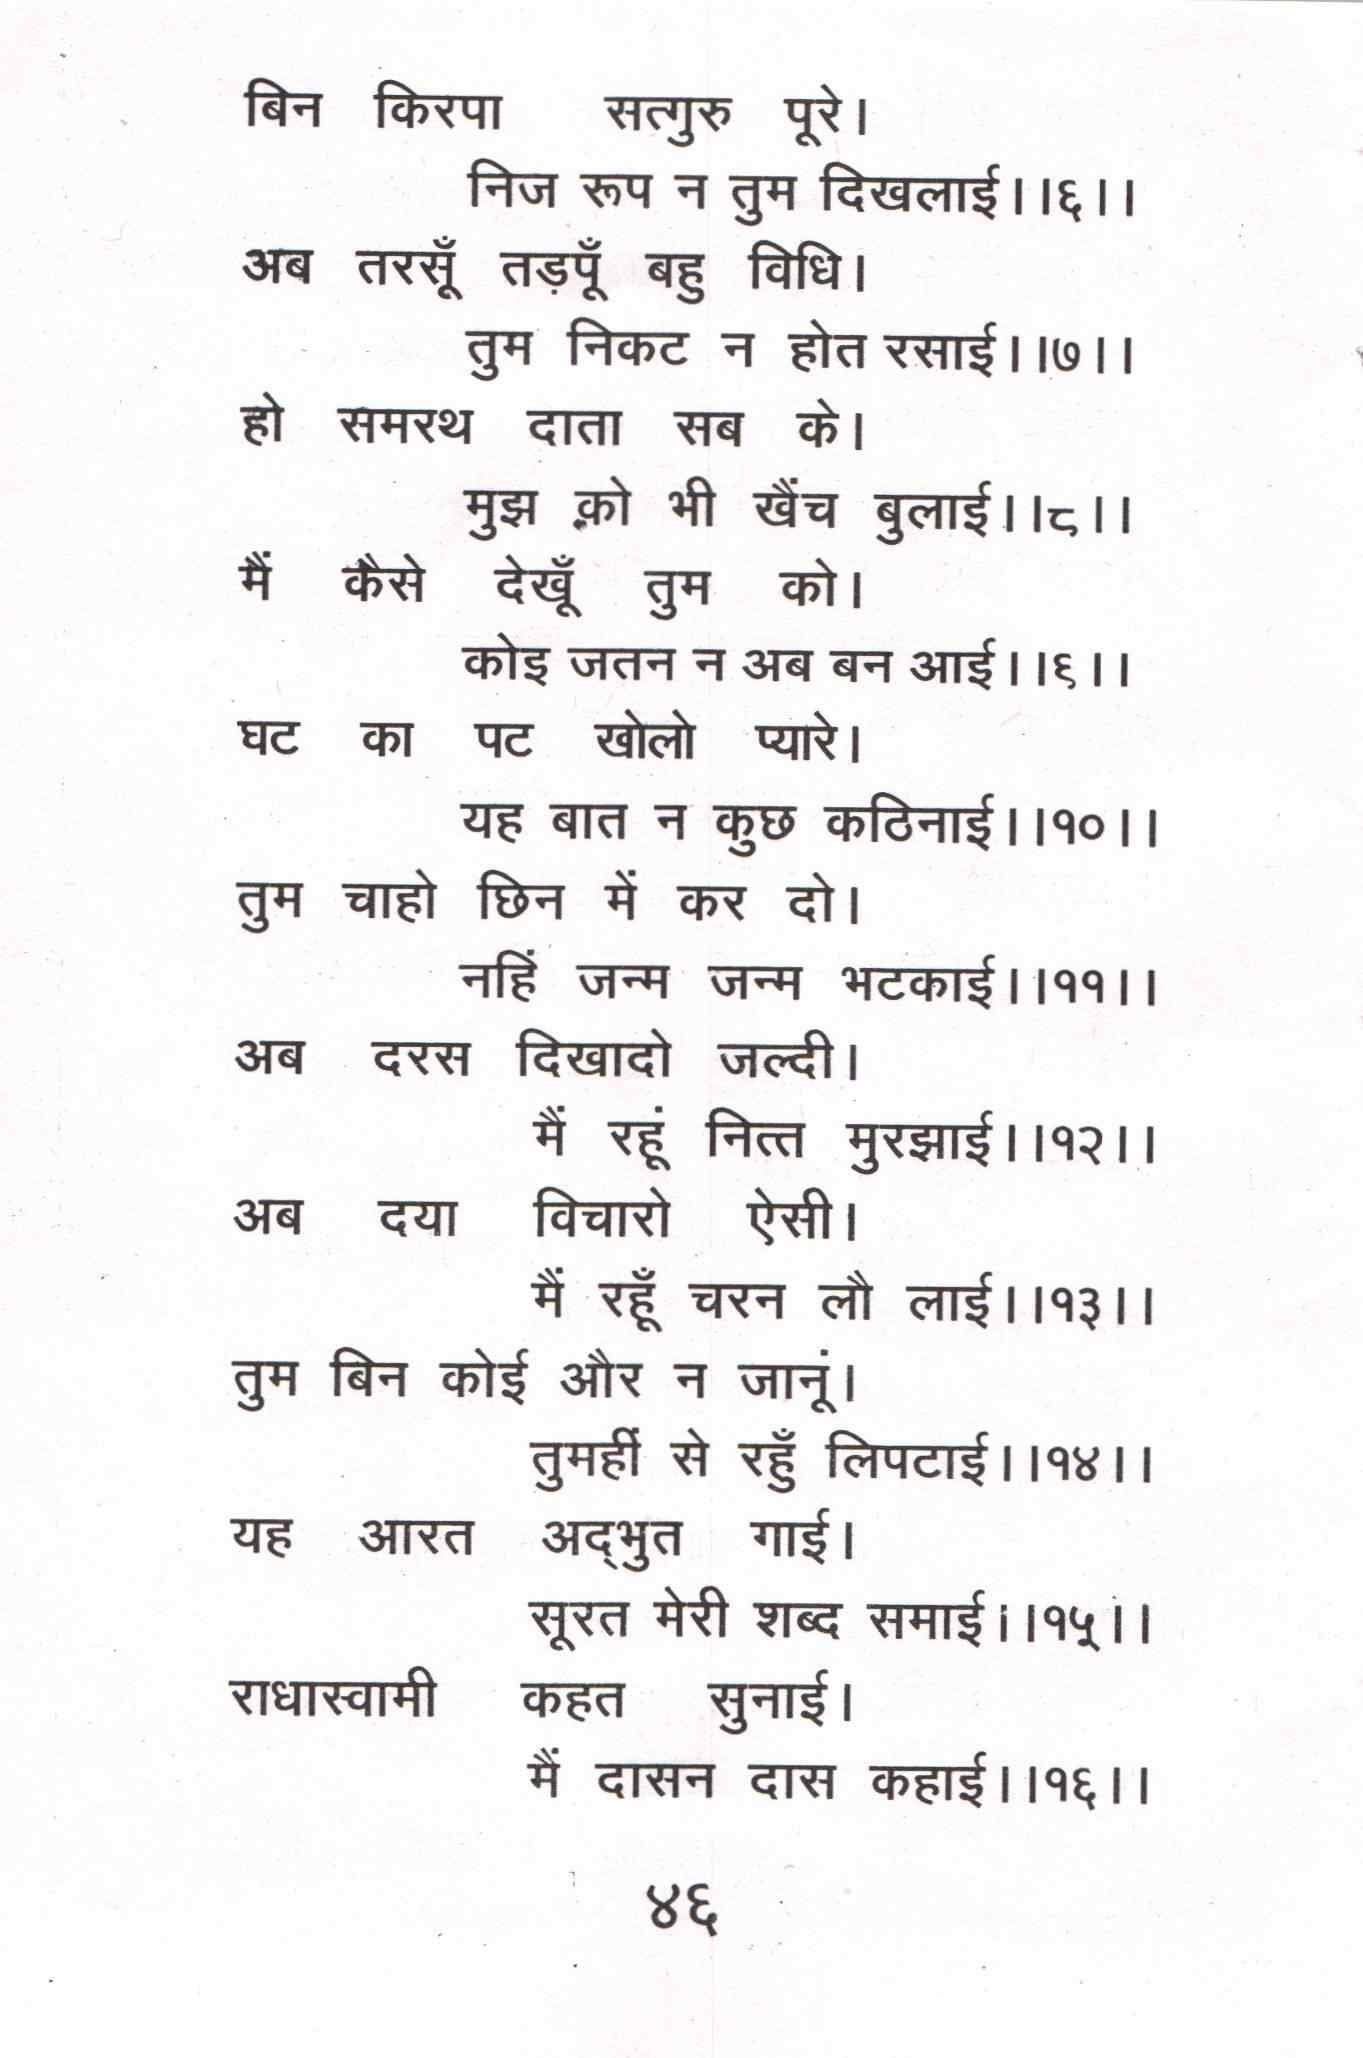 बिन किरपा सत्गुरु पूरे।
निज रूप न तुम दिखलाई।।६।।
अब तरसूँ तड़पूँ बहु विधि।
तुम निकट न होत रसाई।।७।।
हो समरथ दाता सब के।
मुझ को भी खैंच बुलाई।।८।।
मैं कैसे देखूँ तुम को।
कोइ जतन न अब बन आई।।९।।
घट का पट खोलो प्यारे।
यह बात न कुछ कठिनाई।।१०।।
तुम चाहो छिन में कर दो।
नहिं जन्म जन्म भटकाई।।११।।
अब दरस दिखादो जल्दी।
मैं रहूं नित्त मुरझाई।।१२।।
अब दया विचारो ऐसी।
मैं रहूँ चरन लौ लाई।।१३।।
तुम बिन कोई और न जानूं।
तुमहीं से रहुँ लिपटाई।।१४।।
यह आरत अद्‌भुत गाई।
सूरत मेरी शब्द समाई।।१५।।
राधास्वामी कहत सुनाई।
मैं दासन दास कहाई।।१६।।
४६